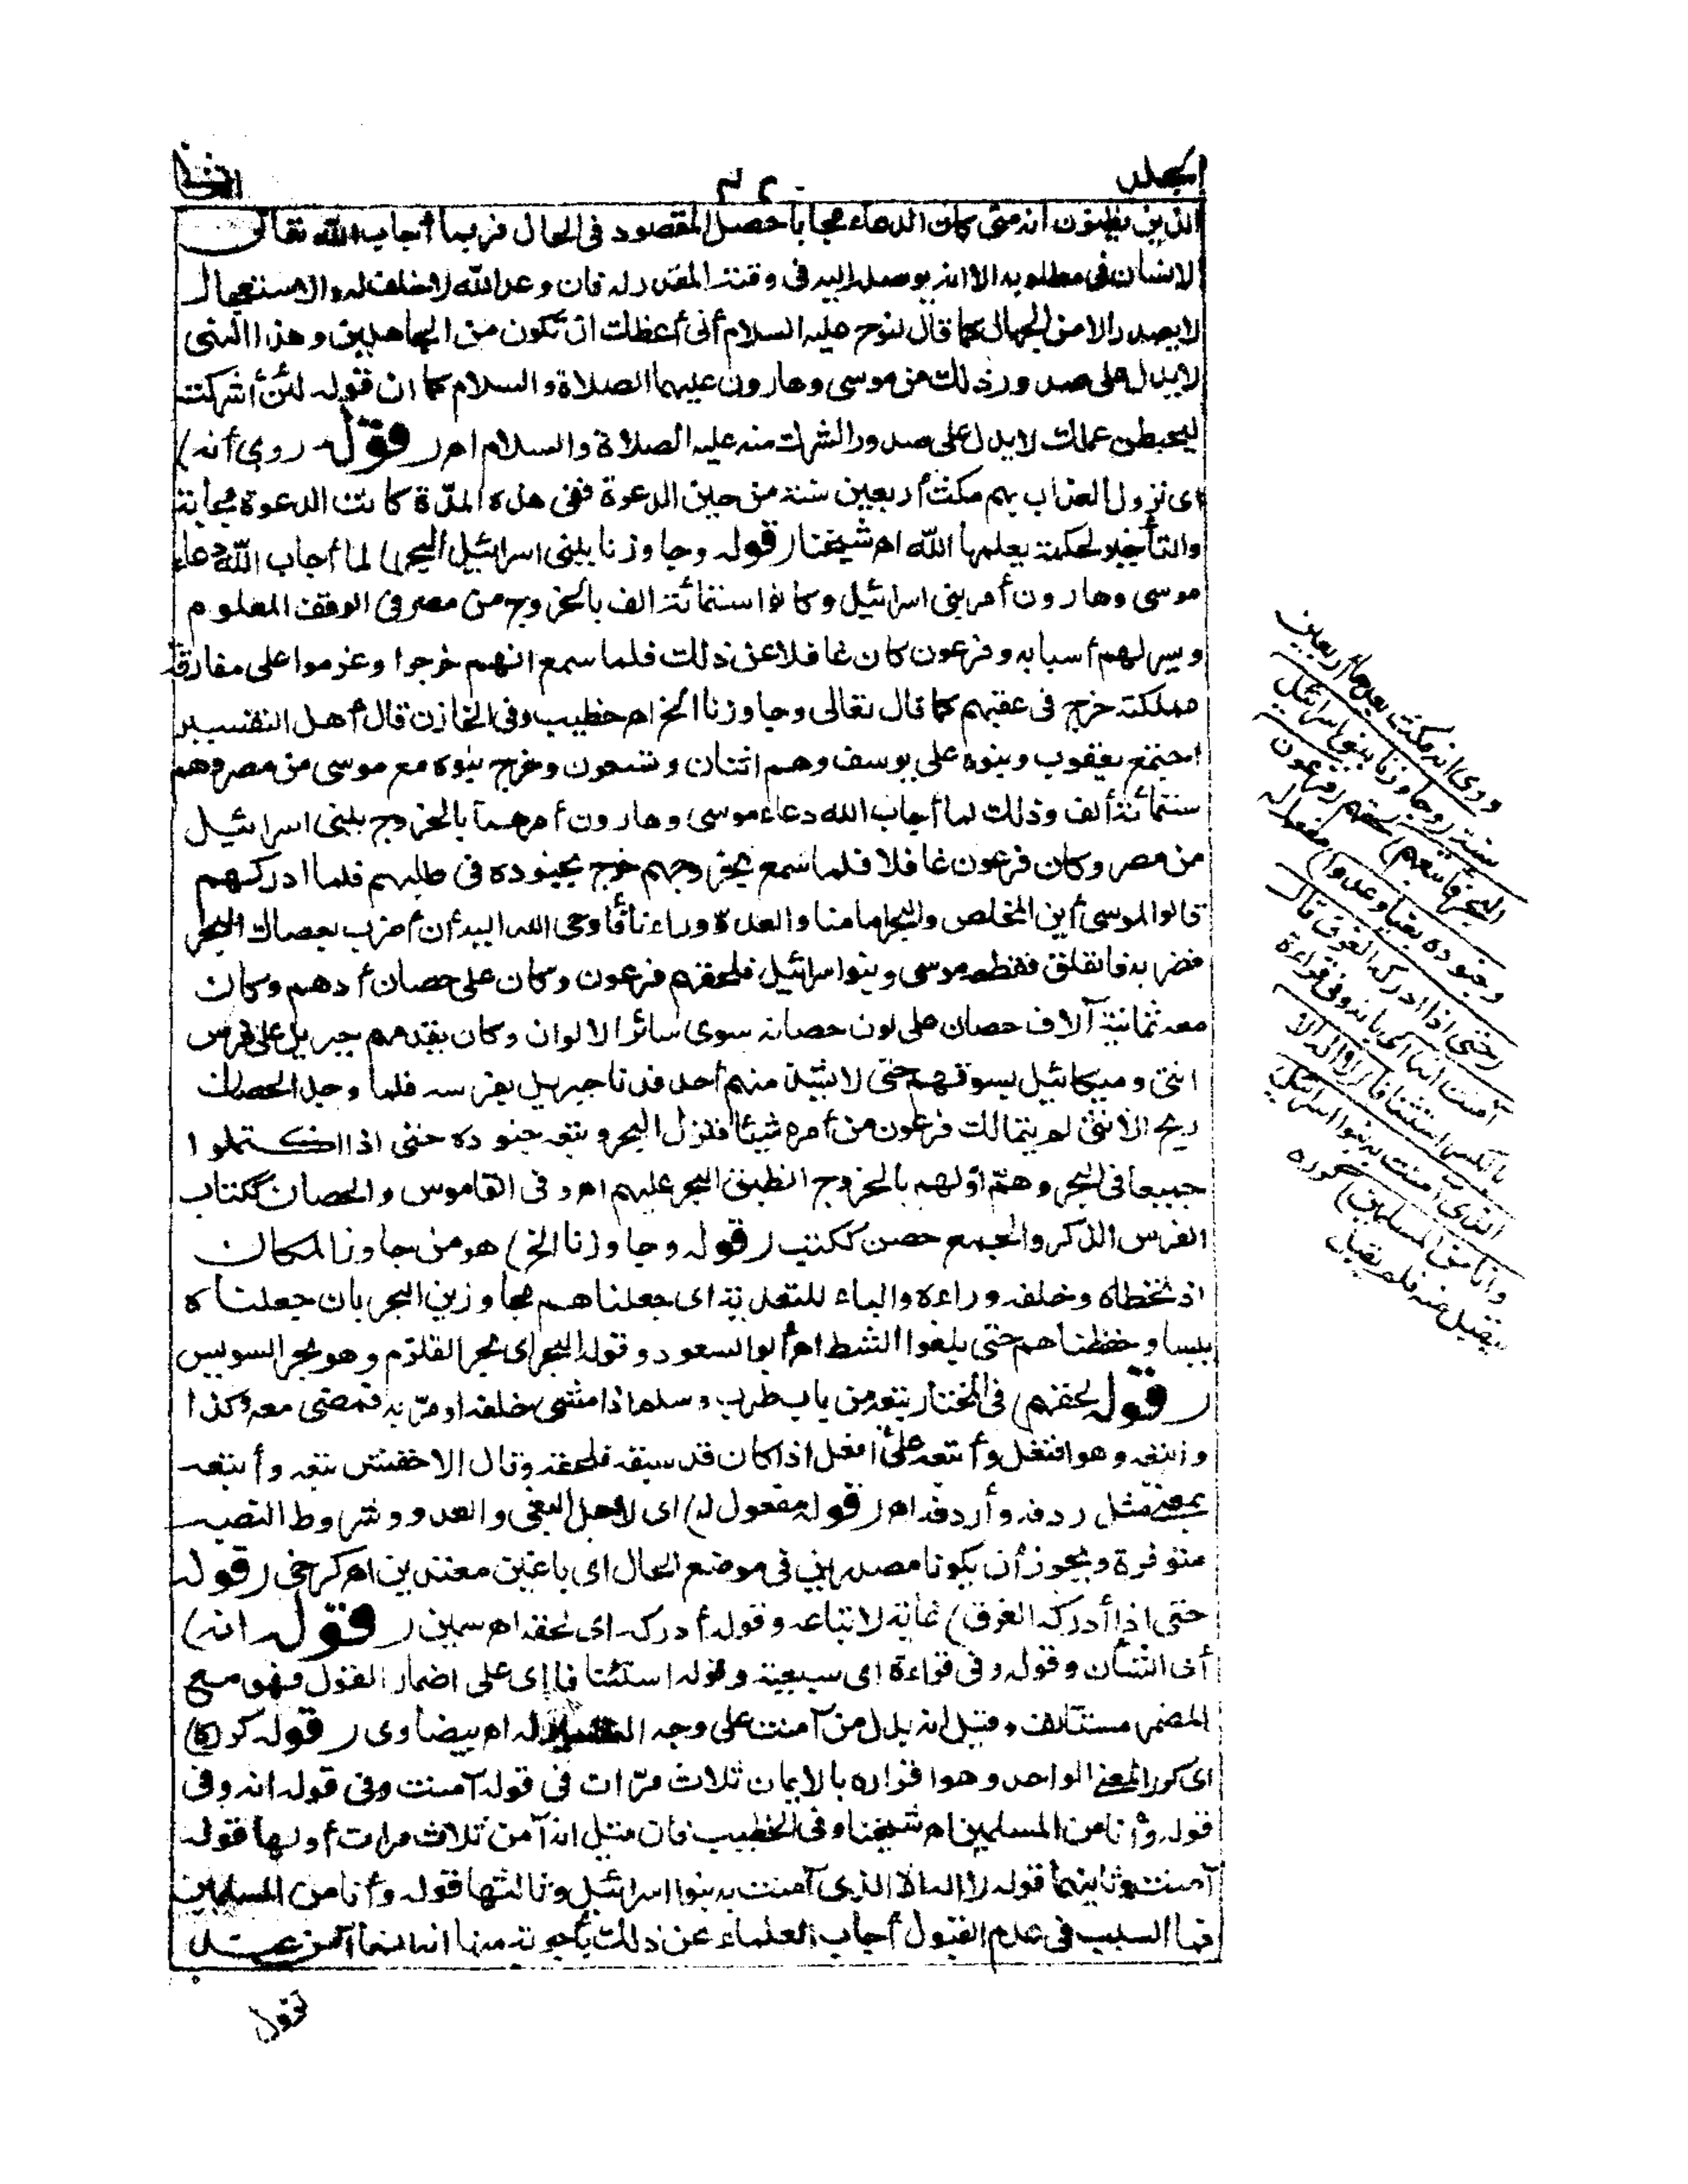 المجلد
الثاني
الذين يظنون انه متى كان الدعاء مجابا حصل المقصود فى الحال فربما أجاب الله تعالى
الانسان فى مطلوبه الا انه يوصله اليه فى وقته المقدر له فان وعد الله لا خلف له والاستعجال
لا يصدر الا من الجهال كما قال لنوح عليه السلام أنى أعظك ان تكون من الجاهلين وهذا النهى
لا يدل على صدور ذلك من موسى وهارون عليهما الصلاة والسلام كما ان قوله لئن أشركت
ليحبطن عملك لا يدل على صدور الشرك منه عليه الصلاة والسلام اهـ (قوله روى أنه)
اى نزول العذاب بهم مكث أربعين سنة من حين الدعوة ففى هذه المدّة كانت الدعوة مجابة
والتأخير لحكمة يعلمها الله اهـ شيخنا (قوله وجاوزنا ببنى اسرائيل البحر) لما أجاب الله دعاء
موسى وهارون أمر بنى اسرائيل وكانوا ستمائة الف بالخروج من مصر فى الوقت المعلوم
ويسر لهم أسبابه وفرعون كان غافلا عن ذلك فلما سمع انهم خرجوا وعزموا على مفارقة
مملكته خرج فى عقبهم كما قال تعالى وجاوزنا الخ اهـ خطيب وفى الخازن قال أهل التفسير
اجتمع يعقوب وبنوه على يوسف وهم اثنان وتسعون وخرج بنوه مع موسى من مصر وهم
ستمائة ألف وذلك لما أجاب الله دعاء موسى وهارون أمرهما بالخروج ببنى اسرائيل
من مصر وكان فرعون غافلا فلما سمع بخروجهم خرج بجنوده فى طلبهم فلما ادركهم
قالوا لموسى أين المخلص والبحر امامنا والعدو وراءنا فأوحى الله اليه أن أضرب بعصاك البحر
فضربه فانفلق فقطعه موسى وبنوا اسرائيل فلحقهم فرعون وكان على حصان أدهم وكان
معه ثمانية آلاف حصان على لون حصانه سوى سائر الالوان وكان يقدمهم جبريل على فرس
انثى وميكائيل يسوقهم حتى لا يشذ منهم أحد فدنا جبريل بفرسه فلما وجد الحصان
ريح الانثى لم يتمالك فرعون من أمره شيئا فنزل البحر وتبعه جنوده حتى اذا اكتملوا
جميعا فى البحر وهمّ اوّلهم بالخروج انطبق البحر عليهم اهـ وفى القاموس والحصان ككتاب
الفرس الذكر والجمع حصن ككتب (قوله وجاوزنا الخ) هو من جاوز المكان
اذ تخطاه وخلفه وراءه والباء للتعدية اى جعلناهم مجاوزين البحر بان جعلناه
يبسا وحفظناهم حتى بلغوا الشط اهـ أبو السعود وقوله البحر اى بحر القلزم وهو بحر السويس
(قوله لحقهم) فى المختار تبعه من باب طرب وسلم اذا مشى خلفه او مرّ به فمضى معه وكذا
واتبعه وهو افتعل وأتبعه على أفعل اذا كان قد سبقه فلحقه وقال الاخفش تبعه وأتبعه
بمعنى مثل ردفه وأردفه اهـ (قوله مفعول له) اى لاجل البغى والعدو وشروط النصب
متوفرة ويجوز أن يكونا مصدرين فى موضع الحال اى باغين معتدين اهـ كرخى (قوله
حتى اذا أدركه الغرق) غاية لاتباعه وقوله أدركه اى لحقه اهـ سمين (قوله انه)
أى الشأن وقوله وفى قراءة اى سبعية وقوله استئنافا اى على اضمار القول فهو مع
المضمر مستأنف وقيل انه بدل من آمنت على وجه اهـ بيضاوى (قوله كرره)
اى كرر المعنى الواحد وهو اقراره بالايمان ثلاث مرّات فى قوله آمنت وفى قوله انه وفى
قوله وأنا من المسلمين اهـ شيخنا وفى الخطيب فان قيل انه آمن ثلاث مرات أولها قوله
آمنت وثانيها قوله لا اله الا الذى آمنت به بنوا اسرائيل وثالثها قوله وأنا من المسلمين
فما السبب فى عدم القبول أجاب العلماء عن ذلك بأجوبة منها انه انما آمن عند
نزول
روى انه مكث بعدها أربعين
سنة (وجاوزنا ببنى اسرائيل
البحر فأتبعهم) لحقهم (فرعون
وجنوده بغيا وعدوا) مفعول له
(حتى اذا ادركه الغرق قال
آمنت انه) اى بانه وفى قراءة
بالكسر استئنافا (لا اله الا
الذى آمنت به بنوا اسرائيل
وانا من المسلمين) كرره
ليقبل منه فلم يقبل